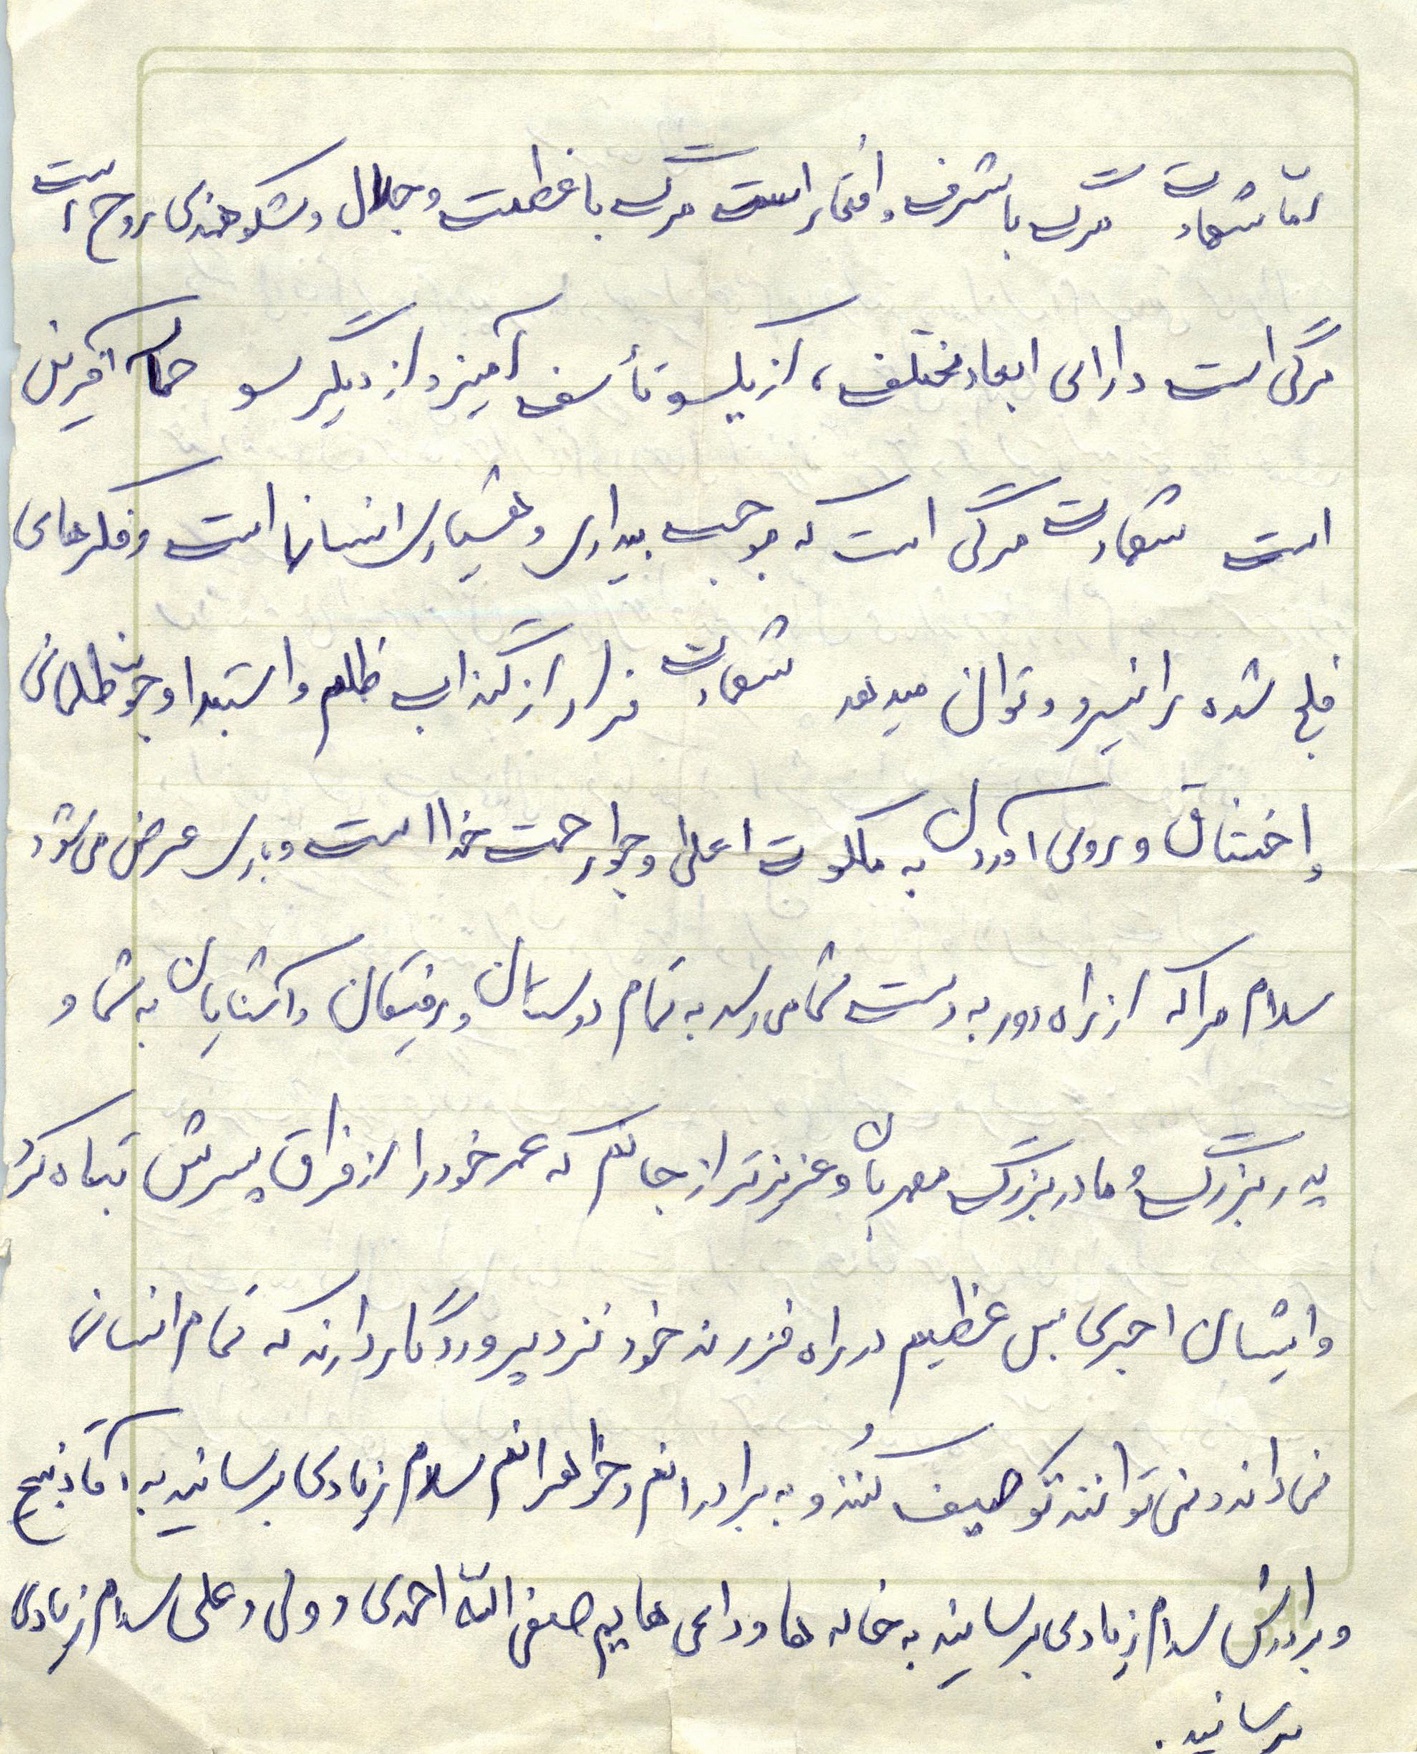 امّا شهادت مرگ با شرف و افتخار است مرگ با عظمت و جلال و شکوهمندی روح است
مرگی است دارای ابعاد مختلف، از یکسو تأسف آمیز و از دیگر سو حماسه آفرین
است شهادت مرگی است که موجب بیداری و هشیاری انسانها است و فکرهای
فلج شده را نیرو و توان میدهد شهادت فرار از گنداب ظلم و استبداد و ظلمانی
و اختناق و روی آوردن به ملکوت اعلی و جوار رحمت خدا است و باری عرض می‌شود
سلام مرا که از راه دور به دست شما می‌رسد به تمام دوستان و رفیقان و آشنایان به شما و
پدر بزرگ و مادر بزرگ مهربان و عزیزتر از جانم که عمر خود را از فراق پسرش تباه کرد
و ایشان اجری بس عظیم در راه فرزند خود نزد پروردگار دارند که تمام انسانها
نمی‌دانند و نمی‌توانند توصیف کنند و به برادرانم و خواهرانم سلام زیادی برسانید به آقا ذبیح
و برادرش سلام زیادی برسانید به خاله ها و دائی هایم صفی الله احمدی و ولی و علی سلام زیادی
برسانید.